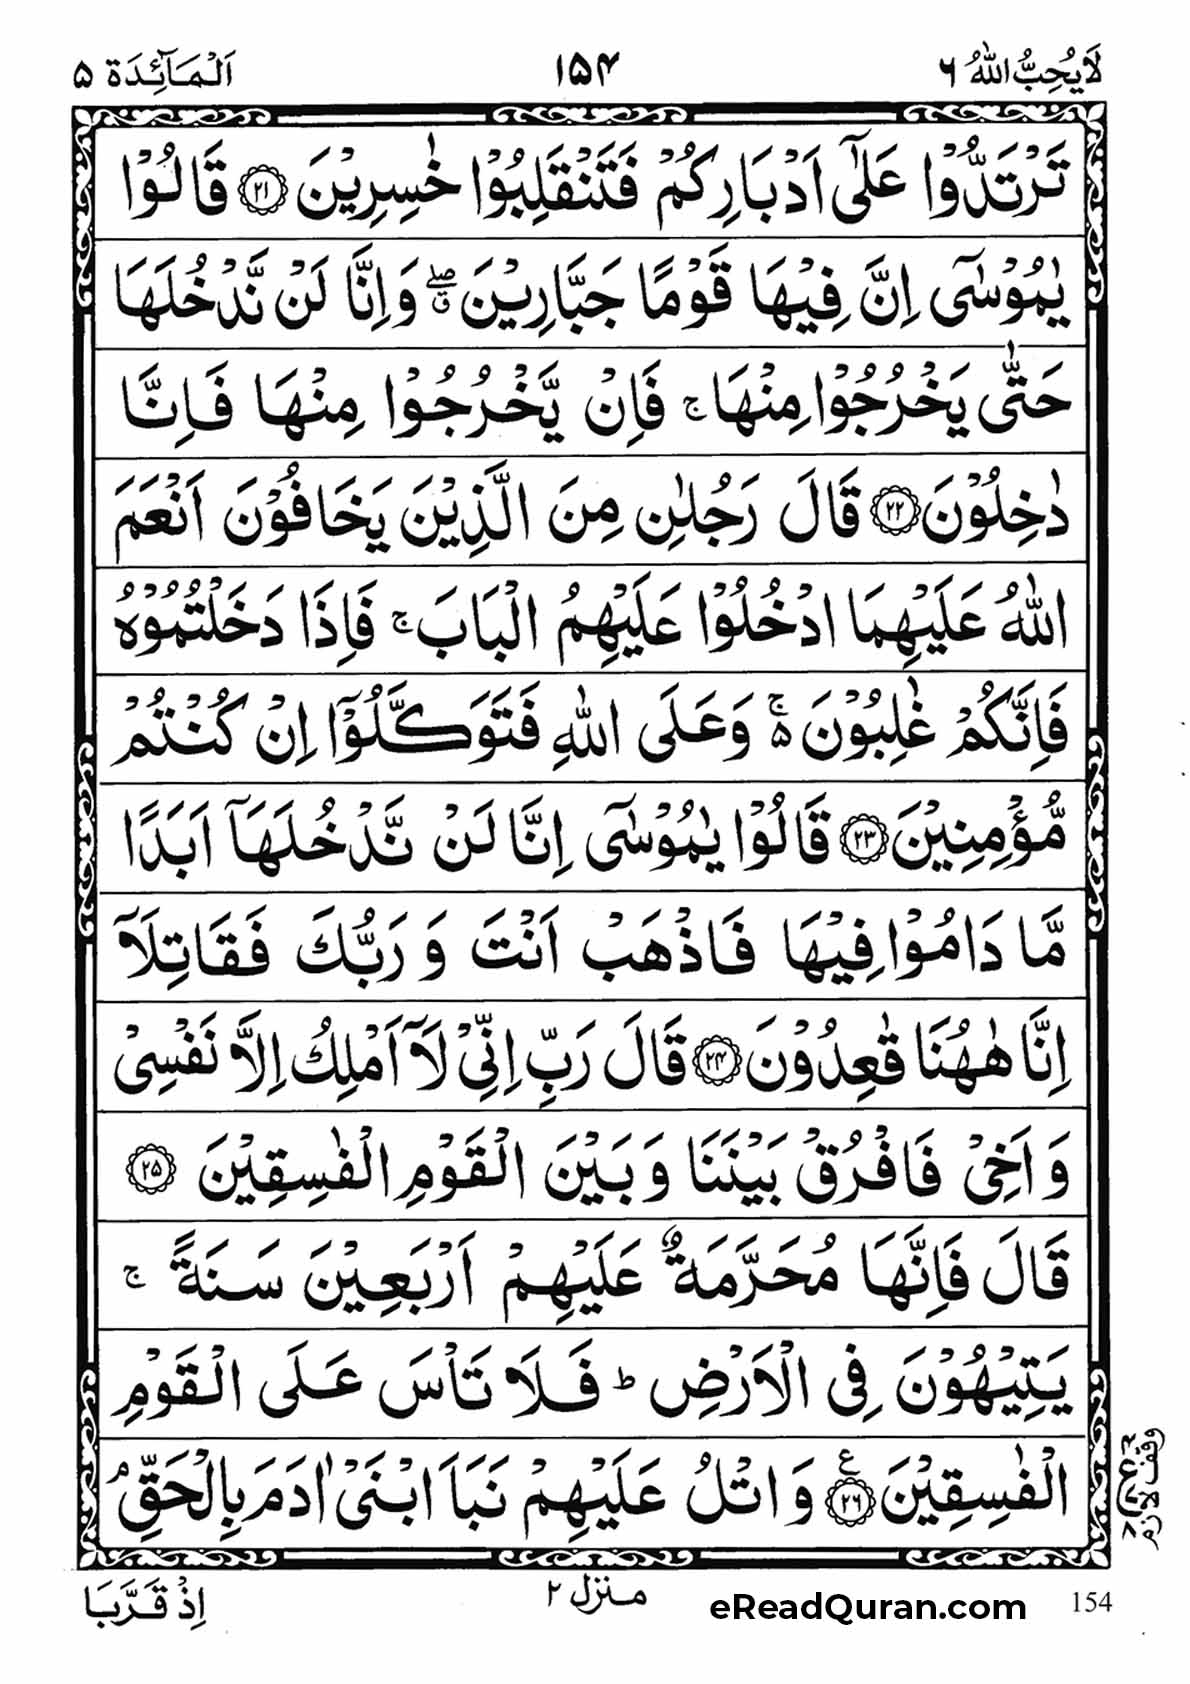 لَا يُحِبُّ اللّٰهُ ۶ ۱۵۴ اَلْمَآئِدَة ۵
تَرْتَدُّوْا عَلٰٓى اَدْبَارِكُمْ فَتَنْقَلِبُوْا خٰسِرِيْنَ ﴿۲۱﴾ قَالُوْا
يٰمُوْسٰٓى اِنَّ فِيْهَا قَوْمًا جَبَّارِيْنَ ۖۗ وَاِنَّا لَنْ نَّدْخُلَهَا
حَتّٰى يَخْرُجُوْا مِنْهَا ۚ فَاِنْ يَّخْرُجُوْا مِنْهَا فَاِنَّا
دٰخِلُوْنَ ﴿۲۲﴾ قَالَ رَجُلٰنِ مِنَ الَّذِيْنَ يَخَافُوْنَ اَنْعَمَ
اللّٰهُ عَلَيْهِمَا ادْخُلُوْا عَلَيْهِمُ الْبَابَ ۚ فَاِذَا دَخَلْتُمُوْهُ
فَاِنَّكُمْ غٰلِبُوْنَ ۚ۵ وَعَلَى اللّٰهِ فَتَوَكَّلُوْٓا اِنْ كُنْتُمْ
مُّؤْمِنِيْنَ ﴿۲۳﴾ قَالُوْا يٰمُوْسٰٓى اِنَّا لَنْ نَّدْخُلَهَآ اَبَدًا
مَّا دَامُوْا فِيْهَا فَاذْهَبْ اَنْتَ وَ رَبُّكَ فَقَاتِلَآ
اِنَّا هٰهُنَا قٰعِدُوْنَ ﴿۲۴﴾ قَالَ رَبِّ اِنِّىْ لَآ اَمْلِكُ اِلَّا نَفْسِىْ
وَ اَخِىْ فَافْرُقْ بَيْنَنَا وَ بَيْنَ الْقَوْمِ الْفٰسِقِيْنَ ﴿۲۵﴾
قَالَ فَاِنَّهَا مُحَرَّمَةٌ عَلَيْهِمْ اَرْبَعِيْنَ سَنَةً ۚ
يَتِيْهُوْنَ فِى الْاَرْضِ ؕ فَلَا تَاْسَ عَلَى الْقَوْمِ
الْفٰسِقِيْنَ ﴿۲۶﴾ ع وَ اتْلُ عَلَيْهِمْ نَبَاَ ابْنَىْ اٰدَمَ بِالْحَقِّ ۘ
وقف لازم
اِذْ قَرَّبَا منزل ۲ eReadQuran.com 154